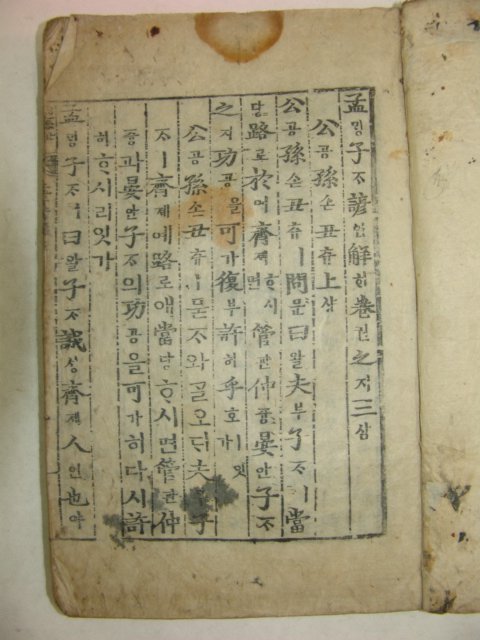 孟ᄆᆡᆼ子ᄌᆞ諺언解ᄒᆡ卷권之지三삼
公공孫손丑튜上샹
公공孫손丑튜ㅣ問문曰왈夫부子ᄌᆞㅣ當
당路로於어齊졔ᄒᆞ시면管관仲듕晏안子ᄌᆞ
之지功공을可가復부許허乎호ㅣ잇가
公공孫손丑튜ㅣ묻ᄌᆞ와ᄀᆞᆯ오ᄃᆡ夫부子
ᄌᆞㅣ齊졔예路로애當당ᄒᆞ시면管관仲
듕과晏안子ᄌᆞ의功공을可가히다시許
허ᄒᆞ시리잇가
孟ᄆᆡᆼ子ᄌᆞㅣ曰왈子ᄌᆞ誠셩齊졔人인也야